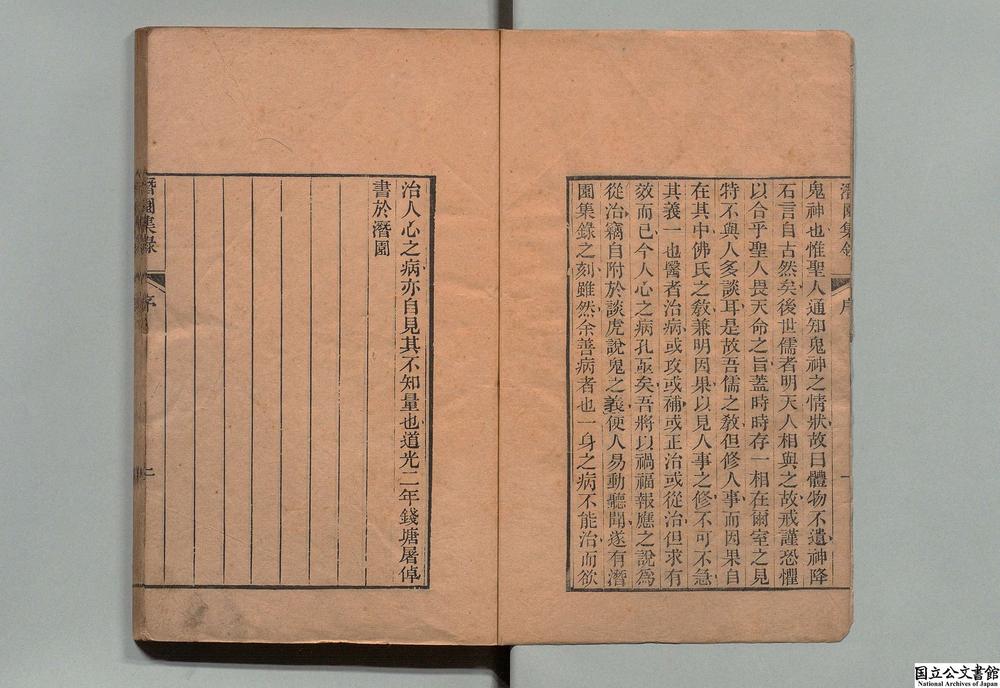 潛園集錄
序
一
鬼神也惟聖人通知鬼神之情狀故曰體物不遺神降
石言自古然矣後世儒者明天人相與之故戒謹恐懼
以合乎聖人畏天命之旨蓋時時存一相在爾室之見
特不與人多談耳是故吾儒之敎但修人事而因果自
在其中佛氏之敎兼明因果以見人事之修不可不急
其義一也醫者治病或攻或補或正治或從治但求有
效而已今人心之病孔亟矣吾將以禍福報應之說爲
從治竊自附於談虎說鬼之義使人易動聽聞遂有潛
園集錄之刻雖然余善病者也一身之病不能治而欲
治人心之病亦自見其不知量也道光二年錢塘屠倬
書於潛園
潛園集錄
序
二
国立公文書館
National Archives of Japan